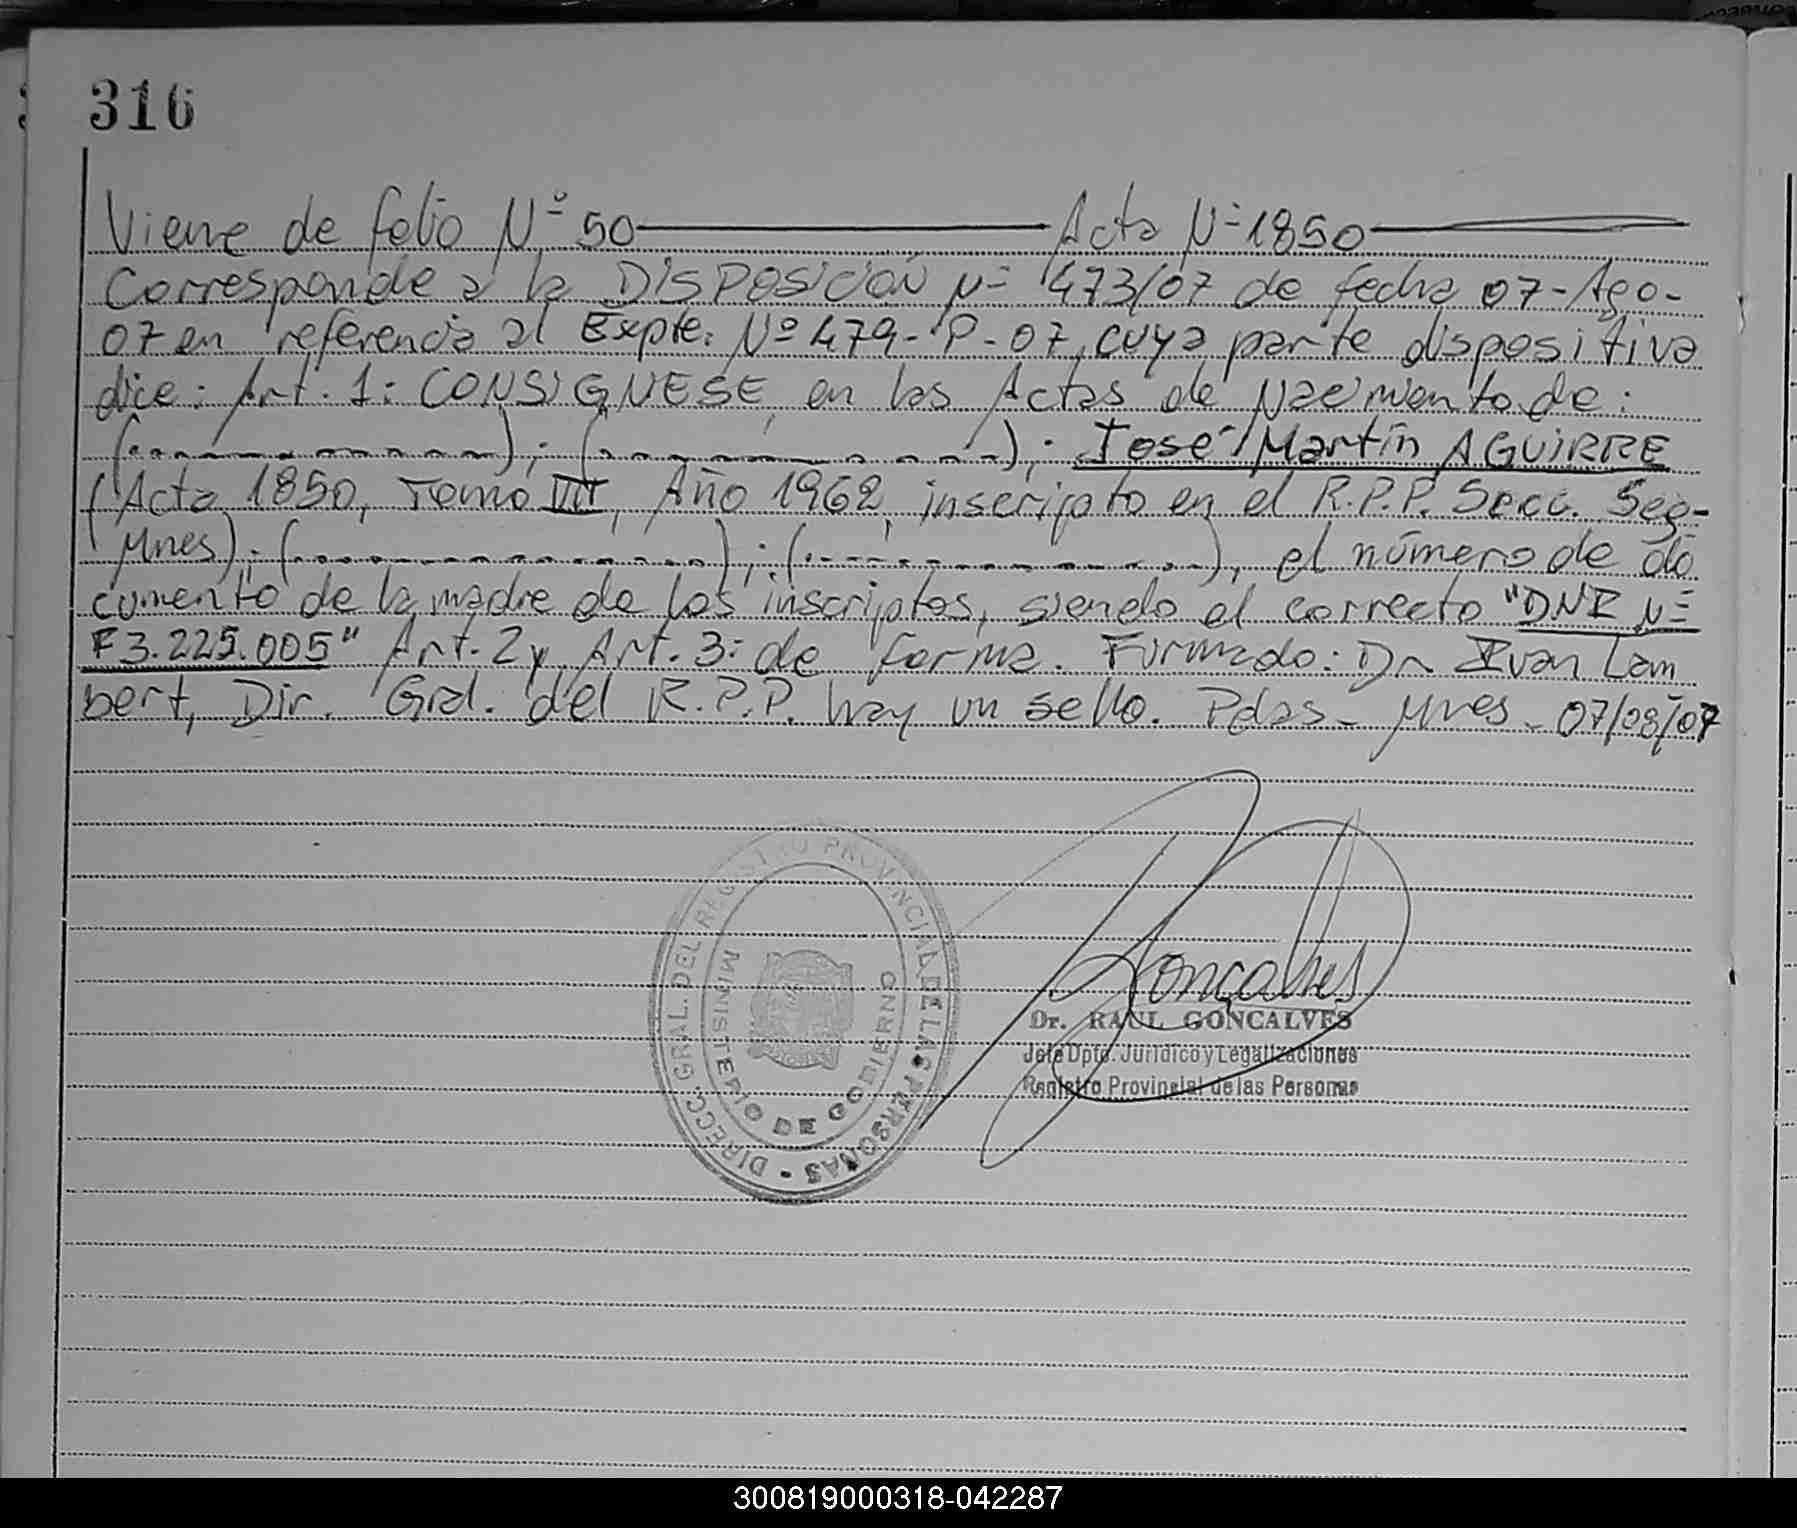 316
Viene de folio Nº 50 Acta Nº 1850
Corresponde a la DISPOSICION Nº 473/07 de fecha 07-Ago-
07 en referencia al Expte. Nº 479-P-07, cuya parte dispositiva
dice: Art. 1: CONSIGNESE, en las Actas de Nacimiento de:
(..............); (..............); José Martín AGUIRRE
(Acta 1850, Tomo VIII, Año 1962, inscripto en el R.P.P. Secc. Seg-
Mnes); (..............); (..............), el número de do
cumento de la madre de los inscriptos, siendo el correcto "DNI Nº
F3.225.005" Art. 2 y Art. 3: de forma. Firmado: Dr. Ivan Lam
bert, Dir. Gral. del R.P.P. hay un sello. Pdas- Mnes- 07/08/07
DIRECC. GRAL. DEL REGISTRO PROVINCIAL DE LAS PERSONAS -
MINISTERIO DE GOBIERNO
Goncalves
Dr. RAUL GONCALVES
Jefe Dpto. Jurídico y Legalizaciones
Registro Provincial de las Personas
300819000318-042287